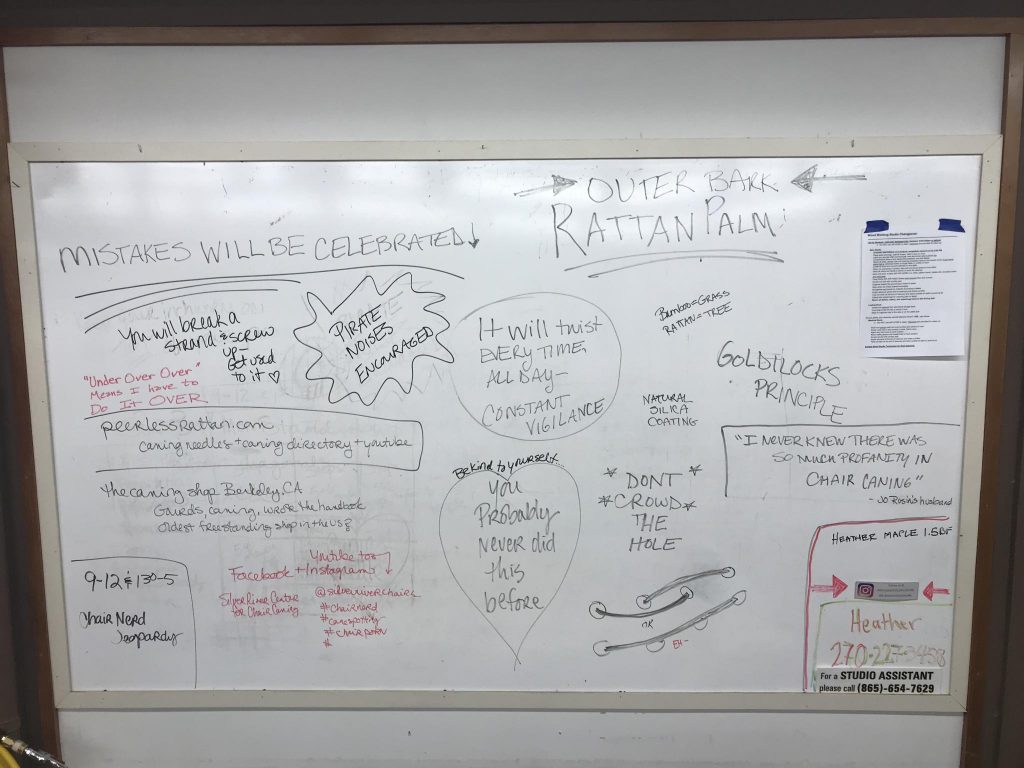 → OUTER BARK ←
RATTAN PALM
MISTAKES WILL BE CELEBRATED ↓
You will break a
strand & screw
up—
Get used
to it ♡
"Under Over Over"
Means I have to
Do It OVER
PIRATE
NOISES
ENCOURAGED
It will twist
EVERY TIME,
ALL DAY—
CONSTANT
VIGILANCE
Bamboo=GRASS
RATTAN=TREE
NATURAL
SILICA
COATING
GOLDILOCKS
PRINCIPLE
peerlessrattan.com
caning needles + caning directory + youtube
the caning shop Berkley, CA
Gourds, caning, wrote the handbook
oldest freestanding shop in the US?
Be kind to yourself...
You
Probably
never did
this
before
* DONT *
* CROWD *
THE
HOLE
OR
EH-
"I NEVER KNEW THERE WAS
SO MUCH PROFANITY IN
CHAIR CANING"
- Jo Rosin's husband
9-12 & 130-5
Chair Nerd
Jeopardy
Youtube too
Facebook + Instagram
Silver River Center
for Chair Caning
@silverriverchairs
#chairnerd
#canespotting
#chairporn
#
HEATHER MAPLE 1.5BF
Heather
270-227-3458
For a STUDIO ASSISTANT
please call (865)-654-7629